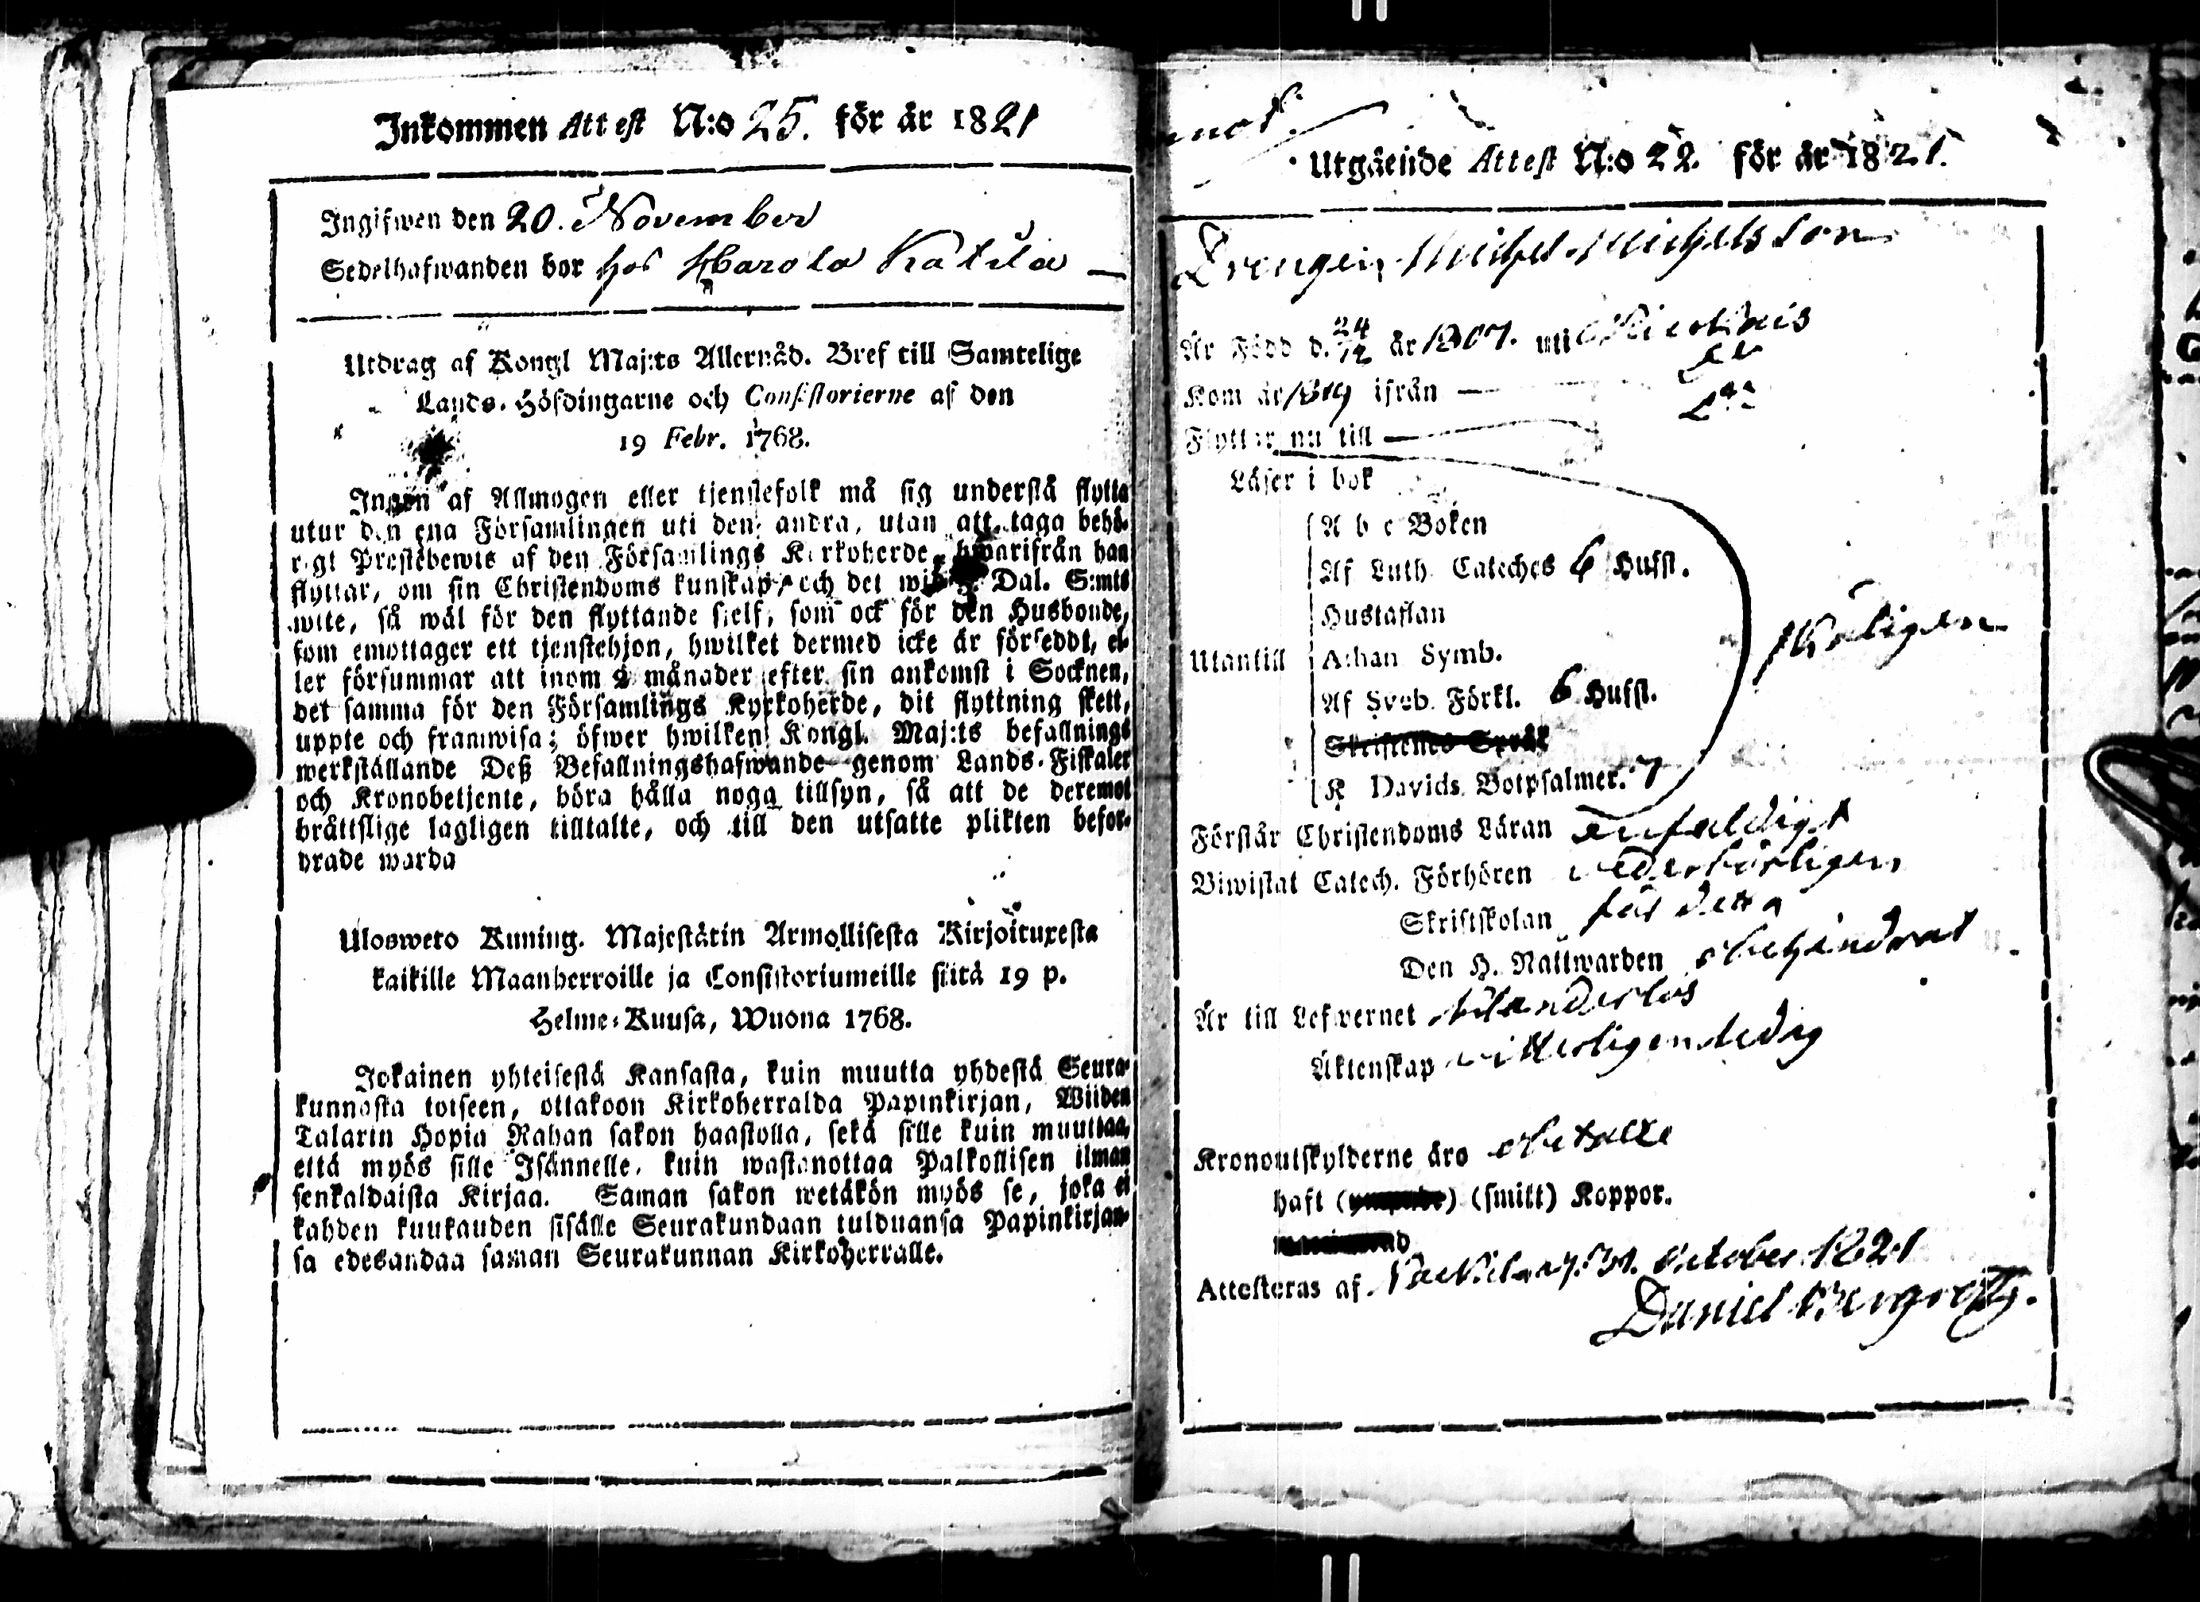 Inkommen Attest N:o 25. för år 1821
Ingifwen den 20. November
Sedelhafwanden bor hos Harola Katila
Utdrag af Kongl Maj:ts Allernåd. Bref till Samtelige
Lands-Höfdingarne och Consistorierne af den
19 Febr. 1768.
Ingen af Allmogen eller tjenstefolk må sig understå flytta
utur den ena Församlingen uti den andra, utan att taga behö-
rigt Prestebewis af den Församlings Kyrkoherde, hwarifrån han
flyttar, om sin Christendoms kunskap, och det wid Dal. S:mts
wite, så wäl för den flyttande sielf, som ock för den Husbonde,
som emottager ett tjenstehjon, hwilket dermed icke är förseddt, el-
ler försummar att inom 2 månader efter sin ankomst i Socknen,
det samma för den Församlings Kyrkoherde, dit flyttning skett,
uppte och framwisa; öfwer hwilken Kongl. Maj:ts befallnings
werkställande Deß Befallningshafwande genom Lands-Fiskaler
och Kronobetjente, böra hålla noga tillsyn, så att de deremot
bråttslige lagligen tilltalte, och till den utsatte plikten befor-
drade warda
Ulosweto Kuning. Majestätin Armollisesta Kirjoituxesta
kaikille Maanherroille ja Consistoriumeille siitä 19 p.
Helme-Kuusa, Wuona 1768.
Jokainen yhteisestä Kansasta, kuin muutta yhdestä Seura-
kunnasta toiseen, ottakoon Kirkoherralda Papinkirjan, Wiiden
Talarin Hopia Rahan sakon haastolla, sekä sille kuin muuttaa,
että myös sille Isännelle, kuin wastanottaa Palkollisen ilman
senkaldaista Kirjaa. Saman sakon wetäkön myös se, joka ei
kahden kuukauden sisälle Seurakundaan tulduansa Papinkirjan-
sa edesandaa saman Seurakunnan Kirkoherralle.
Utgående Attest N:o 22. för år 1821.
Drengen Michel Michelsson
Är Född d. 24/12 år 1807. uti
Kom år 1819 ifrån —
Flyttar nu till —
Läser i bok
A b c Boken
Af Luth. Cateches 6 Hufst.
Hustaflan
Utantill Athan Symb.
Af Sveb. Förkl. 6 Hufst.
Skriftenes Språk
K Davids Botpsalmer. 7
Förstår Christendoms Läran enfaldigt
Biwistat Catech. Förhören wederbörligen
Skriftskolan för detta
Den H. Nattwarden obehindrat
Är till Lefwernet klanderlös
Äktenskap witterligen ledig
Kronoutskylderne äro obetalte
haft (smitt) Koppor.
Attesteras af 31. October 1821
Daniel Bergroth.